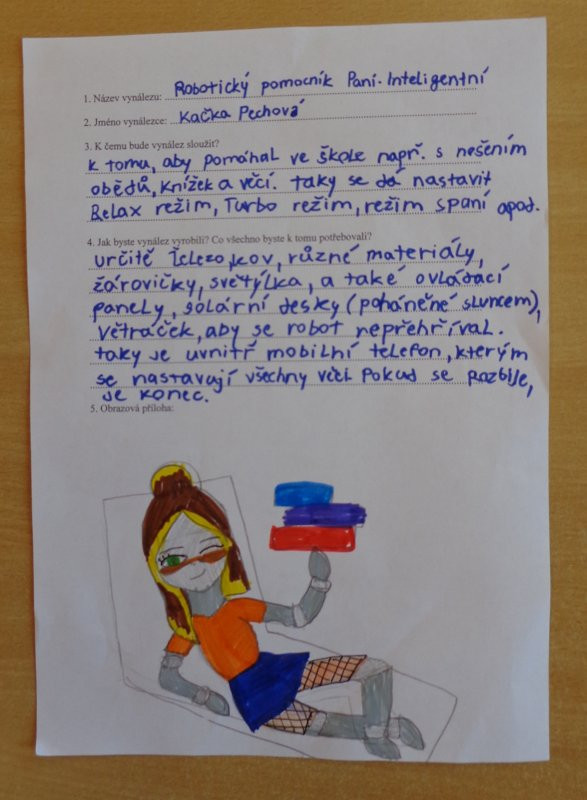 1. Název vynálezu: Robotický pomocník Paní Inteligentní
2. Jméno vynálezce: Kačka Pechová
3. K čemu bude vynález sloužit?
K tomu, aby pomáhal ve škole např. s nešením
obědů, knížek a věcí. taky se dá nastavit
Relax režim, Turbo režim, režim spaní apod.
4. Jak byste vynález vyrobili? Co všechno byste k tomu potřebovali?
určitě železo, kov, různé materiály,
žárovičky, světýlka, a také ovládací
panely, solární desky (poháněné sluncem),
větráček, aby se robot nepřehříval.
taky je uvnitř mobilní telefon, kterým
se nastavují všechny věci pokud se rozbije,
je konec.
5. Obrazová příloha: